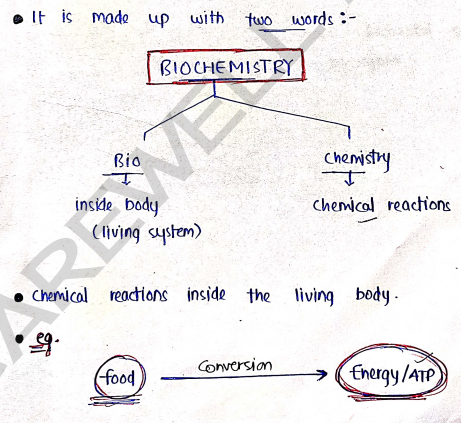 • It is made up with two words :-
BIOCHEMISTRY
Bio chemistry
inside body chemical reactions
(living system)
• chemical reactions inside the living body.
• eg.
food conversion Energy/ATP
AREWELL